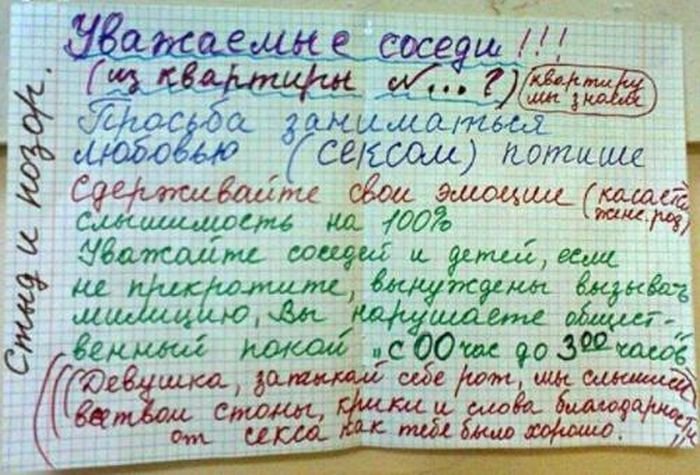 Уважаемые соседи!!!
(из квартиры №...?)
квартиру
мы знаем
Просьба заниматься
любовью (сексом) потише
Сдерживайте свои эмоции (касаетс
женс. род)
слышимость на 100%
Уважайте соседей и детей, если
не прекратите, вынуждены вызывать
милицию, Вы нарушаете общест-
венный покой „с 00 час до 3⁰⁰ часов"
((Девушка, затыкай себе рот, мы слышим
все твои стоны, крики и слова благодарнос
от секса как тебе было хорошо.
Стыд и позор.